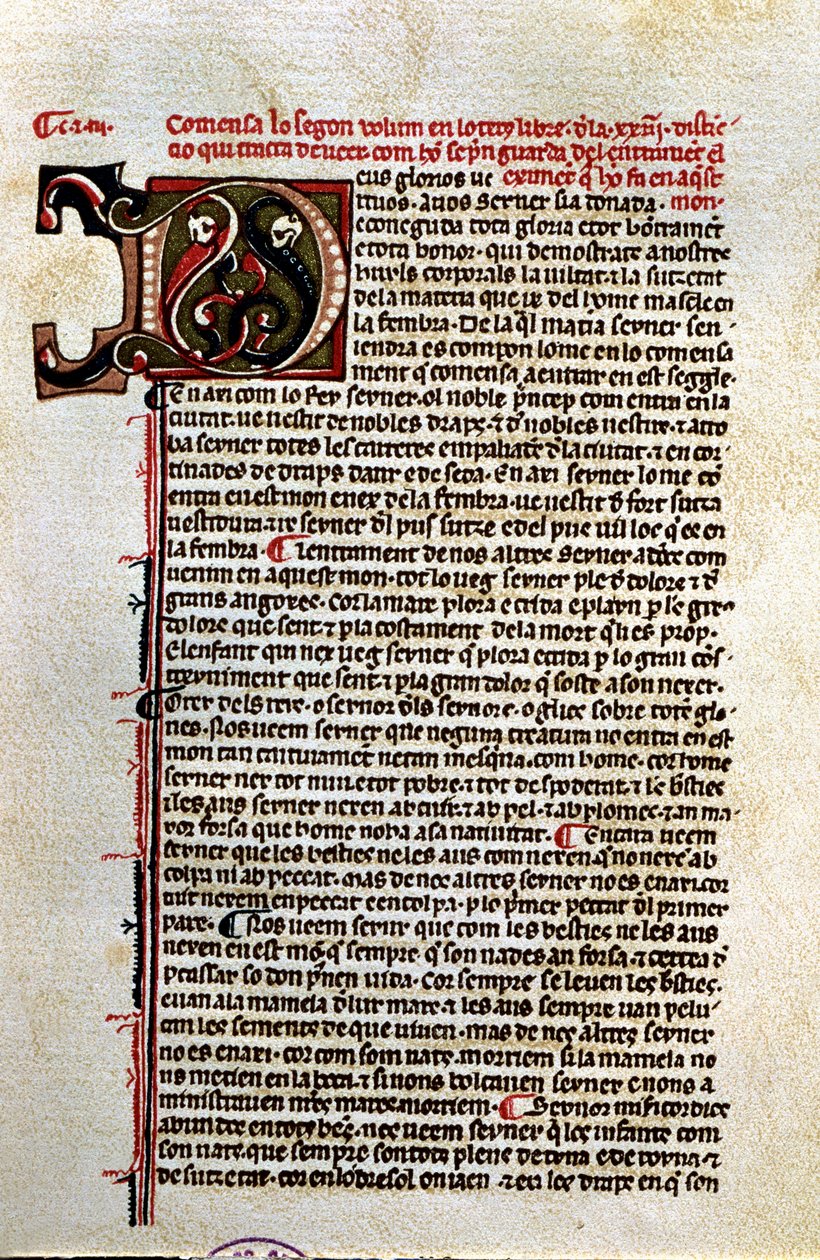 C. c. iii.
Comensa lo segon volum en lo terç libre. dla. xxiii. distic
cio qui tracta de veer com hō se pn guarda del entramēt el
eus glorios ve eximēt q hō fa en aqst
tuos. A vos Senyer sia donada. mon.
e coneguda tota gloria e tot
e tota honor. qui demostrats a nostres
huyls corporals la viltat e la sutzetat
de la materia que ix del home mascle en
la fembra. De la ql matia senyer sen
iendra es compon lome en lo comensa
ment q comensa a entrar en est seggle.
En axi com lo Rey senyer. ol noble pncep com entra en la
ciutat. ve vestit de nobles draps. e d nobles vestirs. e atro
ba senyer totes les carreres empaliades d la ciutat. e en cor
tinades de draps daur e de seda. En axi senyer lome cō
entra en est mon e nex de la fembra. ve vestit d fort sutza
vestidura. e ix senyer dl pus sutze e del pus vil loc q es en
la fembra. Lentrament de nos altres Senyer com
venim en aquest mon. tot lo veg senyer ple d dolors e d
grans angoxes. Cor la mare plora e crida e playn p les grs
dolors que sent. e p la costament de la mort qli es prop.
El enfant qui nex veg senyer q plora e crida p lo gran cōs
trenyiment que sent. e p la gran dolor q soste a son nexer.
O rey dels reys. o senyor dls senyors. o glies sobre totes glo
ries. Nos veem senyer que neguna creatura no entra en est
mon tan cativament ne tan mesqna. com home. cor home
senyer nex tot nuu. e tot pobre. e tot despoderat. e les bsties
e les aus senyer nexen ab cuyr. e ab pel. e ab plomes. e an ma
yor forsa que home no ha a sa nativitat. Encara veem
senyer que les besties ne les aus com nexen. q no nexē ab
colpa ni ab peccat. Mas de nos altres senyer no es en axi. cor
tuit nexem en peccat e en colpa. p lo pmer peccat dl primer
pare. Nos veem senyer que com les besties ne les aus
nexen en est mō. q sempre q son nades an forsa. e d
percassar so don pnen vida. Cor sempre se leven les bsties.
e van a la mamela d lur mare. e les aus sempre van pelu
can les sements de que viven. mas de nos altres senyer
no es en axi. cor com som nats. morriem si la mamela no
ns metien en la boca. e si nons bolcaven senyer e nons a
ministraven nres mares. morriem. Senyor misicordios
abundos en totz bes. nos veem senyer q les infants com
son nats. que sempre son tots plens de e de ronya. e
de sutzetat. cor en lo bresol on iaen. e en les draps en q son